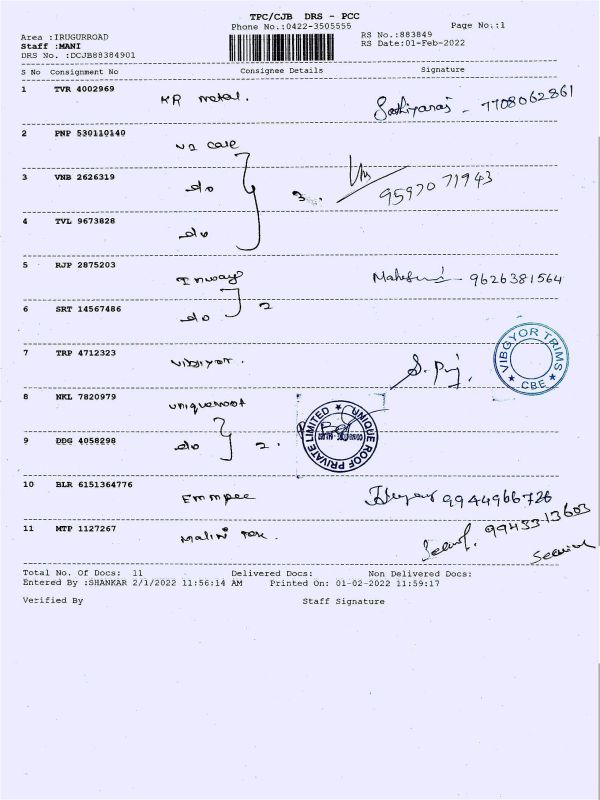 TPC/CJB DRS - PCC
Phone No.:0422-3505555
Page No.:1
Area :IRUGURROAD
RS No.:883849
Staff :MANI
RS Date:01-Feb-2022
DRS No. :DCJB88384901
S No Consignment No Consignee Details Signature
1 TVR 4002969
KR metal.
7708062861
2 PNP 530110140
V2 care
3 VNB 2626319
do 3
95970 71943
4 TVL 9673828
do
5 RJP 2875203
Inways
9626381564
6 SRT 14567486
do 2
7 TRP 4712323
Vibgiyor.
VIBGYOR TRIMS
★ CBE ★
8 NKL 7820979
uniqueroof
UNIQUE ROOF PRIVATE LIMITED ★
9 DDG 4058298
do 2.
10 BLR 6151364776
Emmpee
9944966726
11 MTP 1127267
Malini Tex.
9943313603
Total No. Of Docs: 11 Delivered Docs: Non Delivered Docs:
Entered By :SHANKAR 2/1/2022 11:56:14 AM Printed On: 01-02-2022 11:59:17
Verified By Staff Signature